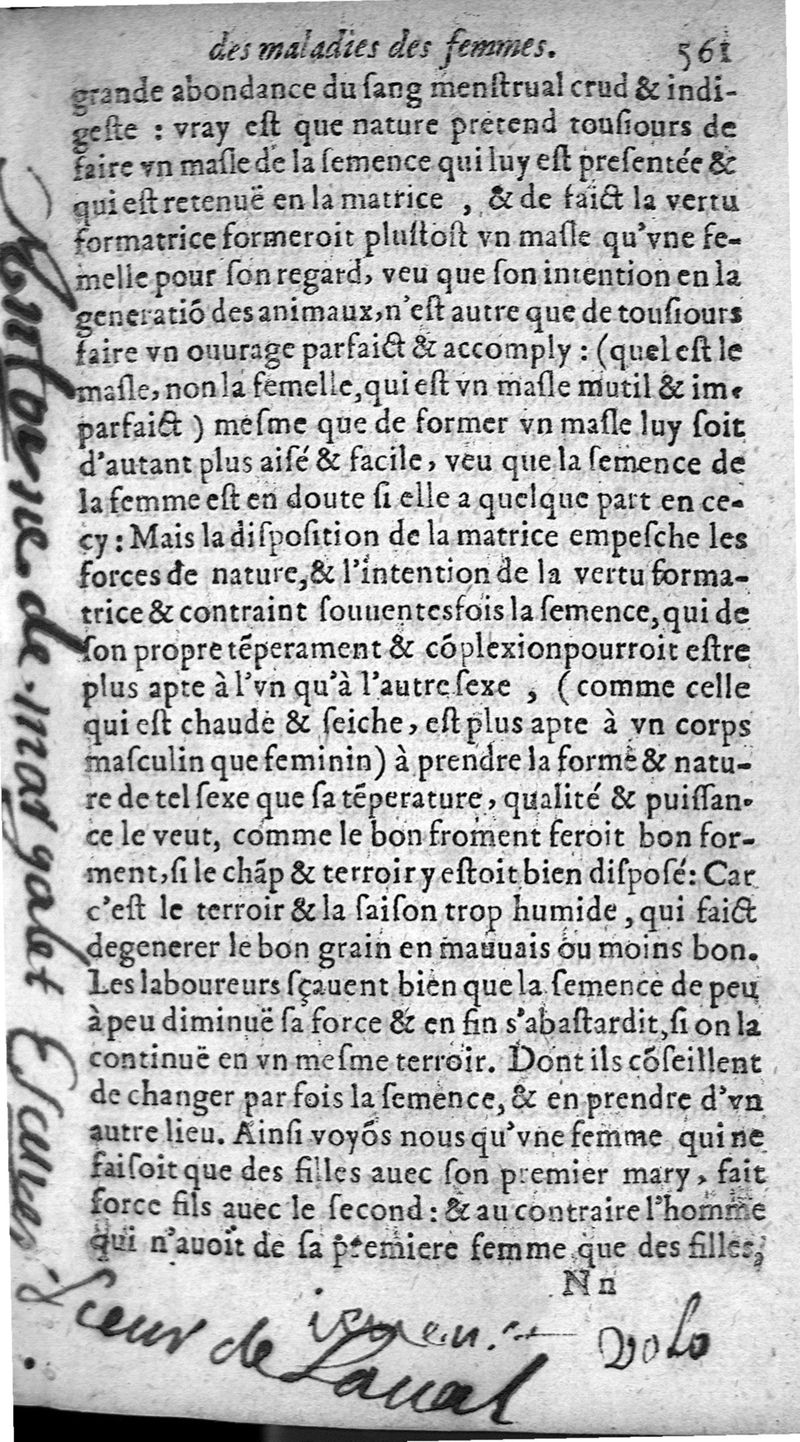 des maladies des femmes. 561
grande abondance du ſang menſtrual crud & indi-
geſte : vray eſt que nature pretend touſiours de
faire vn maſle de la ſemence qui luy eſt preſentée &
qui eſt retenuë en la matrice , & de faict la vertu
formatrice formeroit pluſtoſt vn maſle qu'vne fe-
melle pour ſon regard, veu que ſon intention en la
generatiō des animaux, n'eſt autre que de touſiours
faire vn ouurage parfaict & accomply : (quel eſt le
maſle, non la femelle, qui eſt vn maſle mutil & im-
parfaict ) meſme que de former vn maſle luy ſoit
d'autant plus aiſé & facile, veu que la ſemence de
la femme eſt en doute ſi elle a quelque part en ce-
cy : Mais la diſpoſition de la matrice empeſche les
forces de nature, & l'intention de la vertu forma-
trice & contraint ſouuentesfois la ſemence, qui de
ſon propre tēperament & cōplexion pourroit eſtre
plus apte à l'vn qu'à l'autre ſexe , (comme celle
qui eſt chaude & ſeiche, eſt plus apte à vn corps
maſculin que feminin) à prendre la forme & natu-
re de tel ſexe que ſa tēperature, qualité & puiſſan-
ce le veut, comme le bon froment feroit bon for-
ment, ſi le chāp & terroir y eſtoit bien diſpoſé: Car
c'eſt le terroir & la ſaiſon trop humide, qui faict
degenerer le bon grain en mauuais ou moins bon.
Les laboureurs ſçauent bien que la ſemence de peu
à peu diminuë ſa force & en fin s'abaſtardit, ſi on la
continuë en vn meſme terroir. Dont ils cōſeillent
de changer par fois la ſemence, & en prendre d'vn
autre lieu. Ainſi voyōs nous qu'vne femme qui ne
faiſoit que des filles auec ſon premier mary, fait
force fils auec le ſecond : & au contraire l'homme
qui n'auoit de ſa premiere femme que des filles,
Nn
Antoine de margalet Escuier
Sieur de Laual
volo